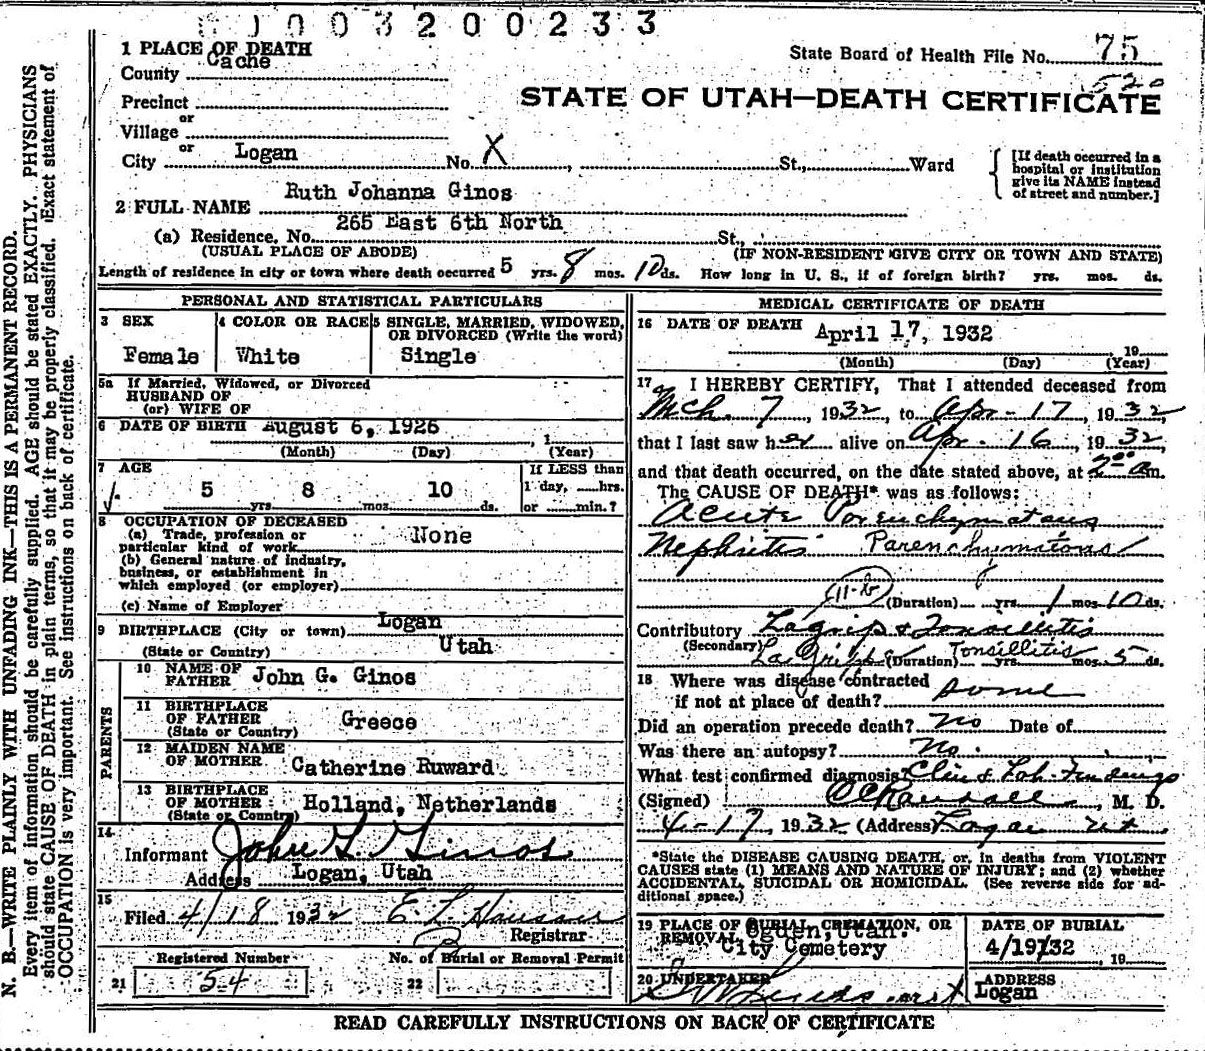 003200233
1 PLACE OF DEATH
State Board of Health File No. 75
County Cache
520
STATE OF UTAH—DEATH CERTIFICATE
Precinct
or
Village
or
City Logan No. X St., Ward
[If death occurred in a
hospital or institution
give its NAME instead
of street and number.]
2 FULL NAME Ruth Johanna Ginos
(a) Residence, No. 265 East 6th North St.,
(USUAL PLACE OF ABODE) (IF NON-RESIDENT GIVE CITY OR TOWN AND STATE)
Length of residence in city or town where death occurred 5 yrs. 8 mos. 10 ds. How long in U. S., if of foreign birth? yrs. mos. ds.
PERSONAL AND STATISTICAL PARTICULARS
3 SEX 4 COLOR OR RACE 5 SINGLE, MARRIED, WIDOWED,
OR DIVORCED (Write the word)
Female White Single
5a If Married, Widowed, or Divorced
HUSBAND OF
(or) WIFE OF
6 DATE OF BIRTH August 6, 1926 , 1
(Month) (Day) (Year)
7 AGE If LESS than
5 8 10 1 day, hrs.
yrs. mos. ds. or min.?
8 OCCUPATION OF DECEASED
(a) Trade, profession or
particular kind of work None
(b) General nature of industry,
business, or establishment in
which employed (or employer)
(c) Name of Employer
9 BIRTHPLACE (City or town) Logan
(State or Country) Utah
PARENTS
10 NAME OF
FATHER John G. Ginos
11 BIRTHPLACE
OF FATHER Greece
(State or Country)
12 MAIDEN NAME
OF MOTHER Catherine Ruward
13 BIRTHPLACE
OF MOTHER Holland, Netherlands
(State or Country)
14
Informant John G. Ginos
Address Logan, Utah
15
Filed 4/18 1932 E. L. Hansen
Registrar
Registered Number No. of Burial or Removal Permit
21 54 22
MEDICAL CERTIFICATE OF DEATH
16 DATE OF DEATH April 17, 1932
19
(Month) (Day) (Year)
17 I HEREBY CERTIFY, That I attended deceased from
Mch. 7, 1932, to Apr-17, 1932
that I last saw her alive on Apr. 16, 1932,
and that death occurred, on the date stated above, at 2 00 am.
The CAUSE OF DEATH* was as follows:
Acute Parenchymatous
Nephritis Parenchymatous
11-b (Duration) yrs. 1 mos. 10 ds.
Contributory Lagrip & Tonsillitis
(Secondary) La Gripp & (Duration) Tonsillitis yrs. mos. 5 ds.
18 Where was disease contracted
if not at place of death? Home
Did an operation precede death? No Date of
Was there an autopsy? No.
What test confirmed diagnosis? Clin & Lab. Findings
(Signed) , M. D.
4-17, 1932 (Address) Logan Ut
*State the DISEASE CAUSING DEATH, or, in deaths from VIOLENT
CAUSES state (1) MEANS AND NATURE OF INJURY; and (2) whether
ACCIDENTAL, SUICIDAL OR HOMICIDAL. (See reverse side for ad-
ditional space.)
19 PLACE OF BURIAL, CREMATION, OR
REMOVAL Ogden, Utah.
City Cemetery
DATE OF BURIAL
4/19/32 , 19
20 UNDERTAKER
ADDRESS
Logan
READ CAREFULLY INSTRUCTIONS ON BACK OF CERTIFICATE
N. B.—WRITE PLAINLY WITH UNFADING INK—THIS IS A PERMANENT RECORD.
Every item of information should be carefully supplied. AGE should be stated EXACTLY. PHYSICIANS
should state CAUSE OF DEATH in plain terms, so that it may be properly classified. Exact statement of
OCCUPATION is very important. See instructions on back of certificate.